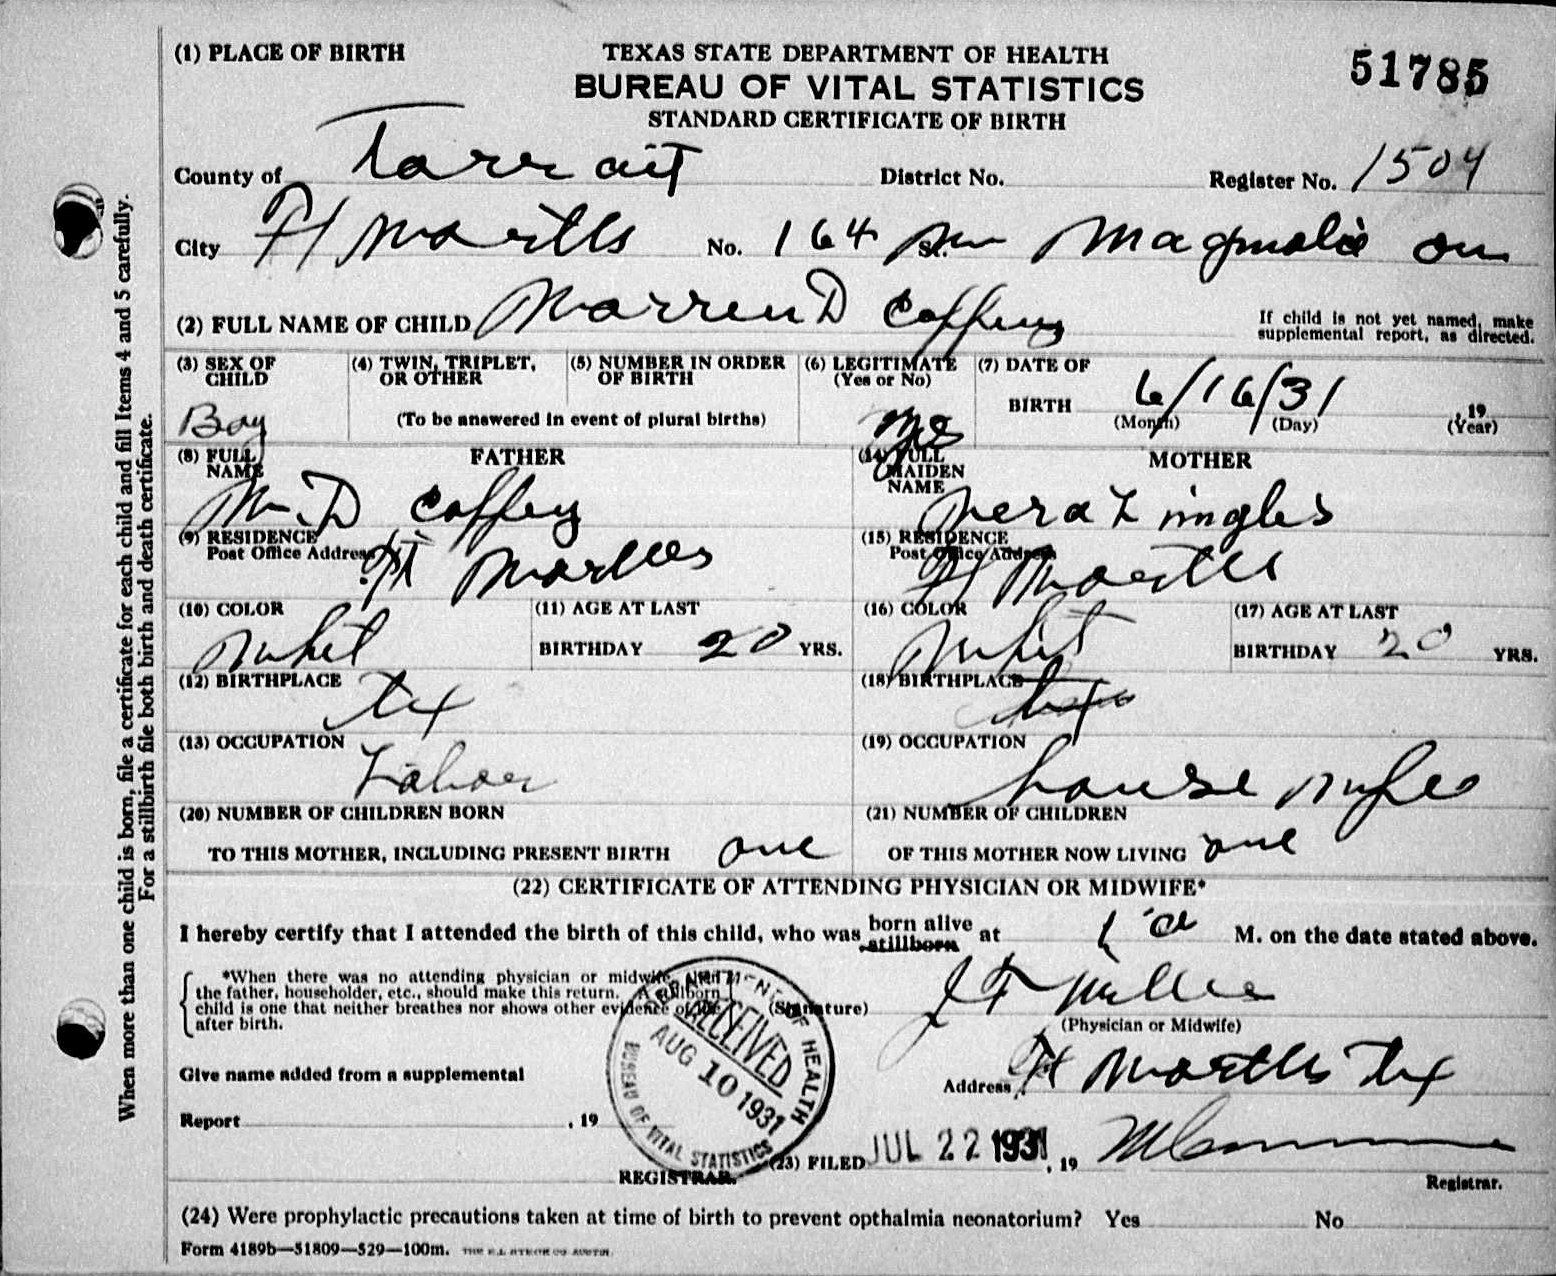 (1) PLACE OF BIRTH
TEXAS STATE DEPARTMENT OF HEALTH
51785
BUREAU OF VITAL STATISTICS
STANDARD CERTIFICATE OF BIRTH
County of Tarrant District No. Register No. 1504
City Ft Worth No. 164 St. Magnolia
(2) FULL NAME OF CHILD Warren D Coffey
If child is not yet named, make
supplemental report, as directed.
(3) SEX OF CHILD Boy
(4) TWIN, TRIPLET, OR OTHER
(5) NUMBER IN ORDER OF BIRTH
(To be answered in event of plural births)
(6) LEGITIMATE (Yes or No) yes
(7) DATE OF BIRTH 6/16/31 , 19
(Month) (Day) (Year)
FATHER
(8) FULL NAME W. D Coffey
MOTHER
(14) FULL MAIDEN NAME Vera
(9) RESIDENCE
Post Office Address Ft Worth
(15) RESIDENCE
Post Office Address Ft Worth
(10) COLOR whit
(11) AGE AT LAST BIRTHDAY 20 YRS.
(16) COLOR whit
(17) AGE AT LAST BIRTHDAY 20 YRS.
(12) BIRTHPLACE tex
(18) BIRTHPLACE
(13) OCCUPATION Labor
(19) OCCUPATION house wife
(20) NUMBER OF CHILDREN BORN
TO THIS MOTHER, INCLUDING PRESENT BIRTH one
(21) NUMBER OF CHILDREN
OF THIS MOTHER NOW LIVING one
(22) CERTIFICATE OF ATTENDING PHYSICIAN OR MIDWIFE*
I hereby certify that I attended the birth of this child, who was born alive stillborn at 1 a M. on the date stated above.
*When there was no attending physician or midwife, then
the father, householder, etc., should make this return. A stillborn
child is one that neither breathes nor shows other evidence of life
after birth.
(Signature) J F
(Physician or Midwife)
Give name added from a supplemental
Address Ft Worth Tex
Report , 19
DEPARTMENT OF HEALTH
RECEIVED
AUG 10 1931
BUREAU OF VITAL STATISTICS
REGISTRAR.
(23) FILED JUL 22 1931 , 19
Registrar.
(24) Were prophylactic precautions taken at time of birth to prevent opthalmia neonatorium? Yes No
Form 4189b—51809—529—100m.
When more than one child is born, file a certificate for each child and fill Items 4 and 5 carefully.
For a stillbirth file both birth and death certificate.